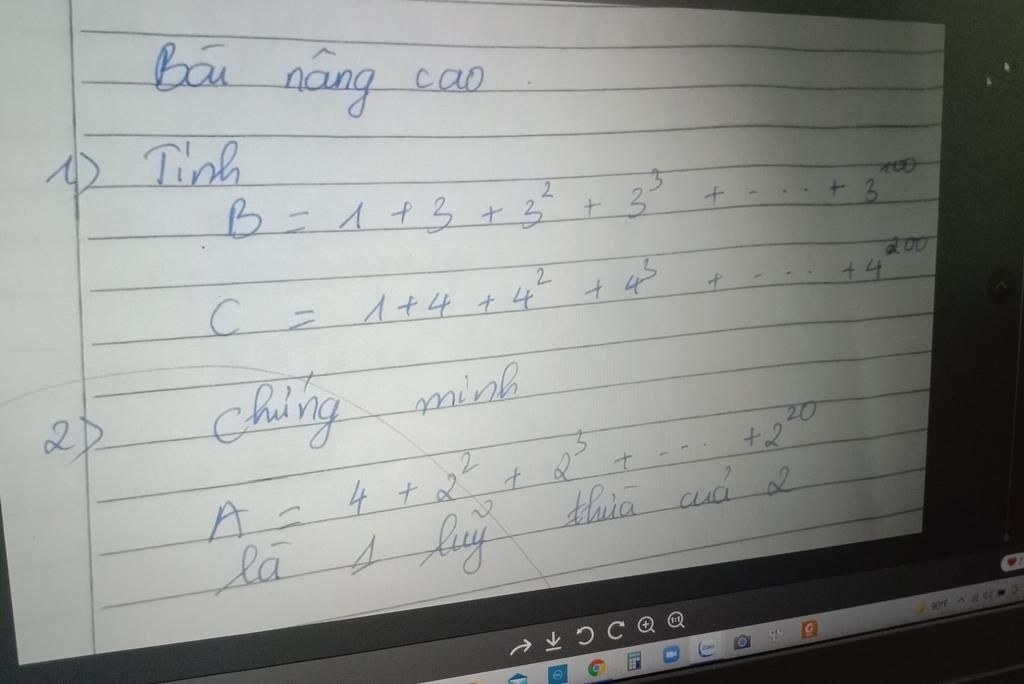 Bài nâng cao.
1) Tính
B = 1 + 3 + 3² + 3³ + ..... + 3¹⁰⁰
C = 1 + 4 + 4² + 4³ + ..... + 4²⁰⁰
2) Chứng minh
A = 4 + 2² + 2³ + ..... + 2²⁰
là 1 luỹ thừa cuả 2
90°F